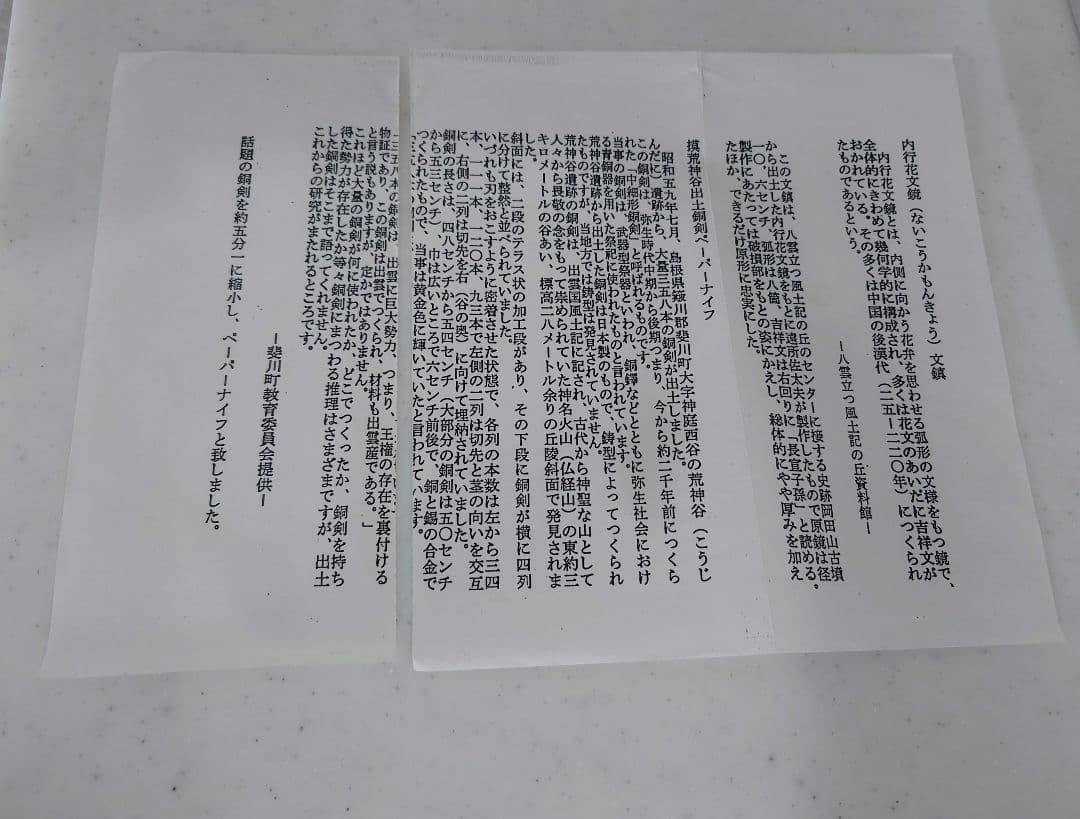 内行花文鏡（ないこうかもんきょう）文鎮
内行花文鏡とは、内側に向かう花弁を思わせる弧形の文様をもつ鏡で、
全体的にきわめて幾何学的に構成され、多くは花文のあいだに吉祥文が
おかれている。その多くは中国の後漢代（二五ー二二〇年）につくられ
たものであるという。
ー八雲立つ風土記の丘資料館ー
この文鎮は、八雲立つ風土記の丘のセンターに接する史跡岡田山古墳
から出土した内行花文鏡をもとに遠所佐太夫が製作したもので原鏡は径
一〇、六センチ、弧形は八箇、吉祥文は右回りに「長宜子孫」と読める。
製作にあたっては破損部をもとの姿にかえし、総体的にやや厚みを加え
たほか、できるだけ原形に忠実にした。
摸荒神谷出土銅剣ペーパーナイフ
昭和五九年七月、島根県簸川郡斐川町大字神庭西谷の荒神谷（こうじ
んだに）遺跡から、大量三五八本の銅剣が出土しました。
この銅剣は、弥生時代中期から後期つまり、今から約二千年前につくら
れた「中細形銅剣」と呼ばれるものです。
当事の銅剣は、武器型祭器といわれ、銅鐸などとともに弥生社会におけ
る青銅器を用いた祭祀に使われたものと言われています。
荒神谷遺跡から出土した銅剣は日本製のもので、鋳型によってつくられ
たものですが、当地方では鋳型は発見されていません。
荒神谷遺跡の銅剣は、出雲国風土記に記され、古代から神聖な山として
人々から畏敬の念をもって崇められていた神名火山（仏経山）の東約三
キロメートルの谷あい、標高二八メートル余りの丘陵斜面で発見されま
した。
斜面には、二段のテラス状の加工段があり、その下段に銅剣が横に四列
に分けて整然と並べられていました。
いづれも刃をおこすように密着させた状態で、各列の本数は左から三四
本、一一一本、一二〇本、九三本で左側の二列は切先と茎の向いを交互
に、右側の二列は切先を右（谷の奥）に向けて埋納されていました。
銅剣の長さは、四八センチから五四センチ（大部分の銅剣は五〇センチ
から五三センチ）、巾は広いところで六センチ前後で、銅と錫の合金で
つくられたもので、当事は黄金色に輝いていたと言われています。
「三五八本の銅剣は、出雲に巨大勢力、つまり、王権の存在を裏付ける
物証であり、この銅剣は出雲でつくられ、材料も出雲産である。」
と言う説もありますが、定かではありません。
これほど大量の銅剣が何に使われたか、どこでつくったか、銅剣を持ち
得た勢力が存在したか等々銅剣にまつわる推理はさまざまですが、出土
した銅剣はそこまで語ってくれません。
これからの研究がまたれるところです。
ー斐川町教育委員会提供ー
話題の銅剣を約五分一に縮小し、ペーパーナイフと致しました。